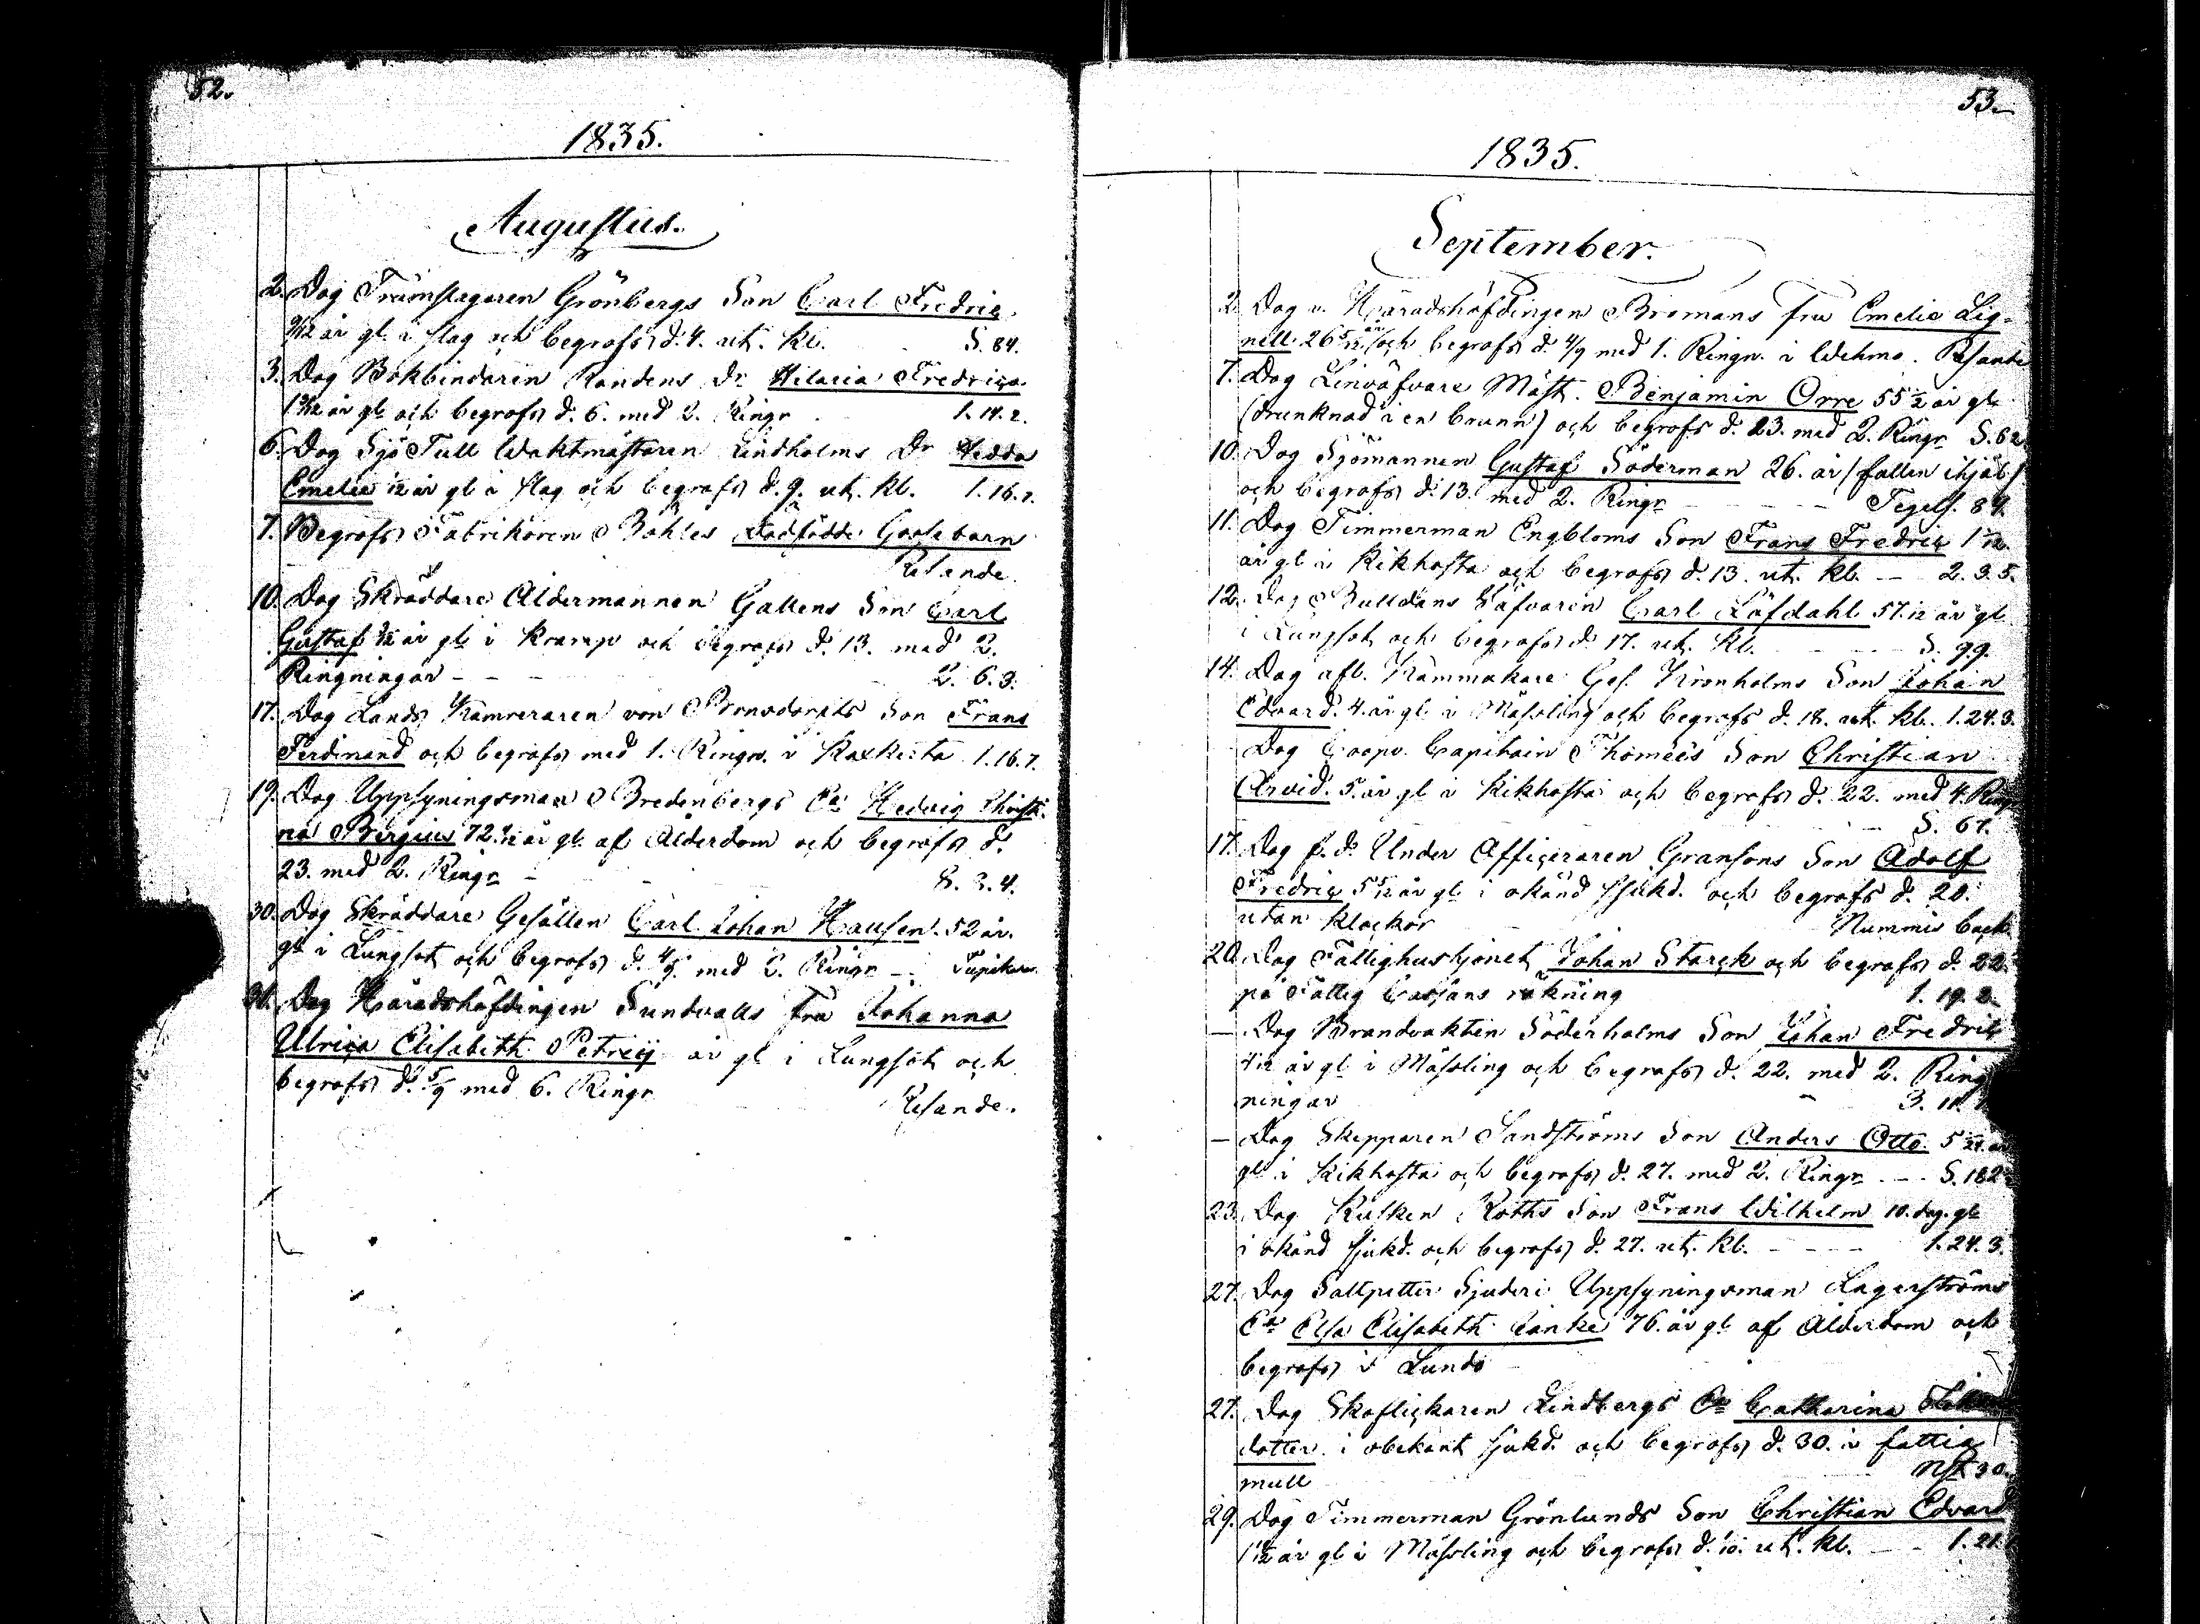 52.
1835.
Augustus.
2. Dog Trumslagaren Grönbergs Son Carl Fredric
9/12 år gl. i slag och begrofs d. 4. ut. kl. S. 84.
3. Dog Bokbindaren Randens Dr Hilaria Fredrica
år gl. och begrofs d. 6. med 2. Ringr 1. 14. 2.
6. Dog Sjö Tull Waktmästaren Lindholms Dr Hedda
Emelie år gl. i slag och begrofs d. 9. ut. kl. 1. 16. 7.
7. Begrofs Fabrikören Böhles dödfödde Gossebarn
Resande.
10. Dog Skräddare Åldermannen Gallens Son Carl
Gustaf år gl. i kramp och begrofs d. 13. med 2.
Ringningar - - - 2. 6. 3.
17. Dog Lands Kamreraren von Bonsdorffs Son Frans
Ferdinand och begrofs med 1. Ringn. i Kaxkerta 1. 16. 7.
19. Dog Uppsyningsman Bredenbergs Ea Hedvig Christi-
na Bergius 72. år gl. af Ålderdom och begrofs d.
23. med 2. Ringr - - 8. 3. 4.
30. Dog Skräddare Gesällen Carl Johan Hausen. 52 år.
gl. i Lungsot och begrofs d. 4/9. med 2. Ringr
31. Dog Häradshöfdingen Sundvalls fru Johanna
Ulrica Elisabeth Petreij år gl. i Lungsot och
begrofs d. 5/9 med 6. Ringr Resande.
53.
1835.
September.
2. Dog v. Häradshöfdingen Bromans fru Emelie Lig-
nell 26 5/12 år och begrofs d. 4/9 med 1. Ringn. i Wehmo. Resande
7. Dog Linväfvare Mäst. Benjamin Orre 55 år gl.
(drunknad i en brunn) och begrofs d. 23. med 2. Ringr S. 62
10. Dog Sjömannen Gustaf Söderman 26. år (fallen ihjäl)
och begrofs d. 13. med 2. Ringr - - - Tegels. 84.
11. Dog Timmerman Engbloms Son Frans Fredric 1
år gl. i Kikhosta och begrofs d. 13. ut. kl. - 2. 3. 5.
12. Dog Bulldans Väfvaren Carl Löfdahl 57. år gl.
i Lungsot och begrofs d. 17. ut. kl. - - - S. 99.
14. Dog afl. Kammakare Ges. Kronholms Son Johan
Edvard. 4. år gl. i Mässling och begrofs d. 18. ut. kl. 1. 24. 3.
Dog Coopv. Capitain Thomées Son Christian
Arvid. 5. år gl. i Kikhosta och begrofs d. 22. med 4. Ringr
S. 67.
17. Dog f. d. Under Officeraren Gransons Son Adolf
Fredric 5 år gl. i okänd sjukd. och begrofs d. 20.
utan klockor Nummis back
20. Dog Fattighushjonet Johan Starck och begrofs d. 22.
på Fattig Cassans räkning 1. 19. 2.
- Dog Brandvakten Söderholms Son Johan Fredrik
år gl. i Mässling och begrofs d. 22. med 2. Ring
ningar 3.
- Dog Skepparen Sandströms Son Anders Otto 5
gl. i Kikhosta och begrofs d. 27. med 2. Ringr - - S. 182
23. Dog Kusken Roths Son Frans Wilhelm 10. dag. gl.
i okänd sjukd. och begrofs d. 27. ut. kl. - - - 1. 24. 3.
27. Dog Saltpetter Sjuderi Uppsyningsman Lagerströms
Ea Elsa Elisabeth Lanke 76. år gl. af Ålderdom och
begrofs i Lundo
27. Dog Skoflickaren Lindbergs Ea Catharina
dotter i obekant sjukd. och begrofs d. 30. i fattig
mull 30.
29. Dog Timmerman Grönlunds Son Christian Edvard
år gl. i Mässling och begrofs d. ut. kl. - - 1. 21.